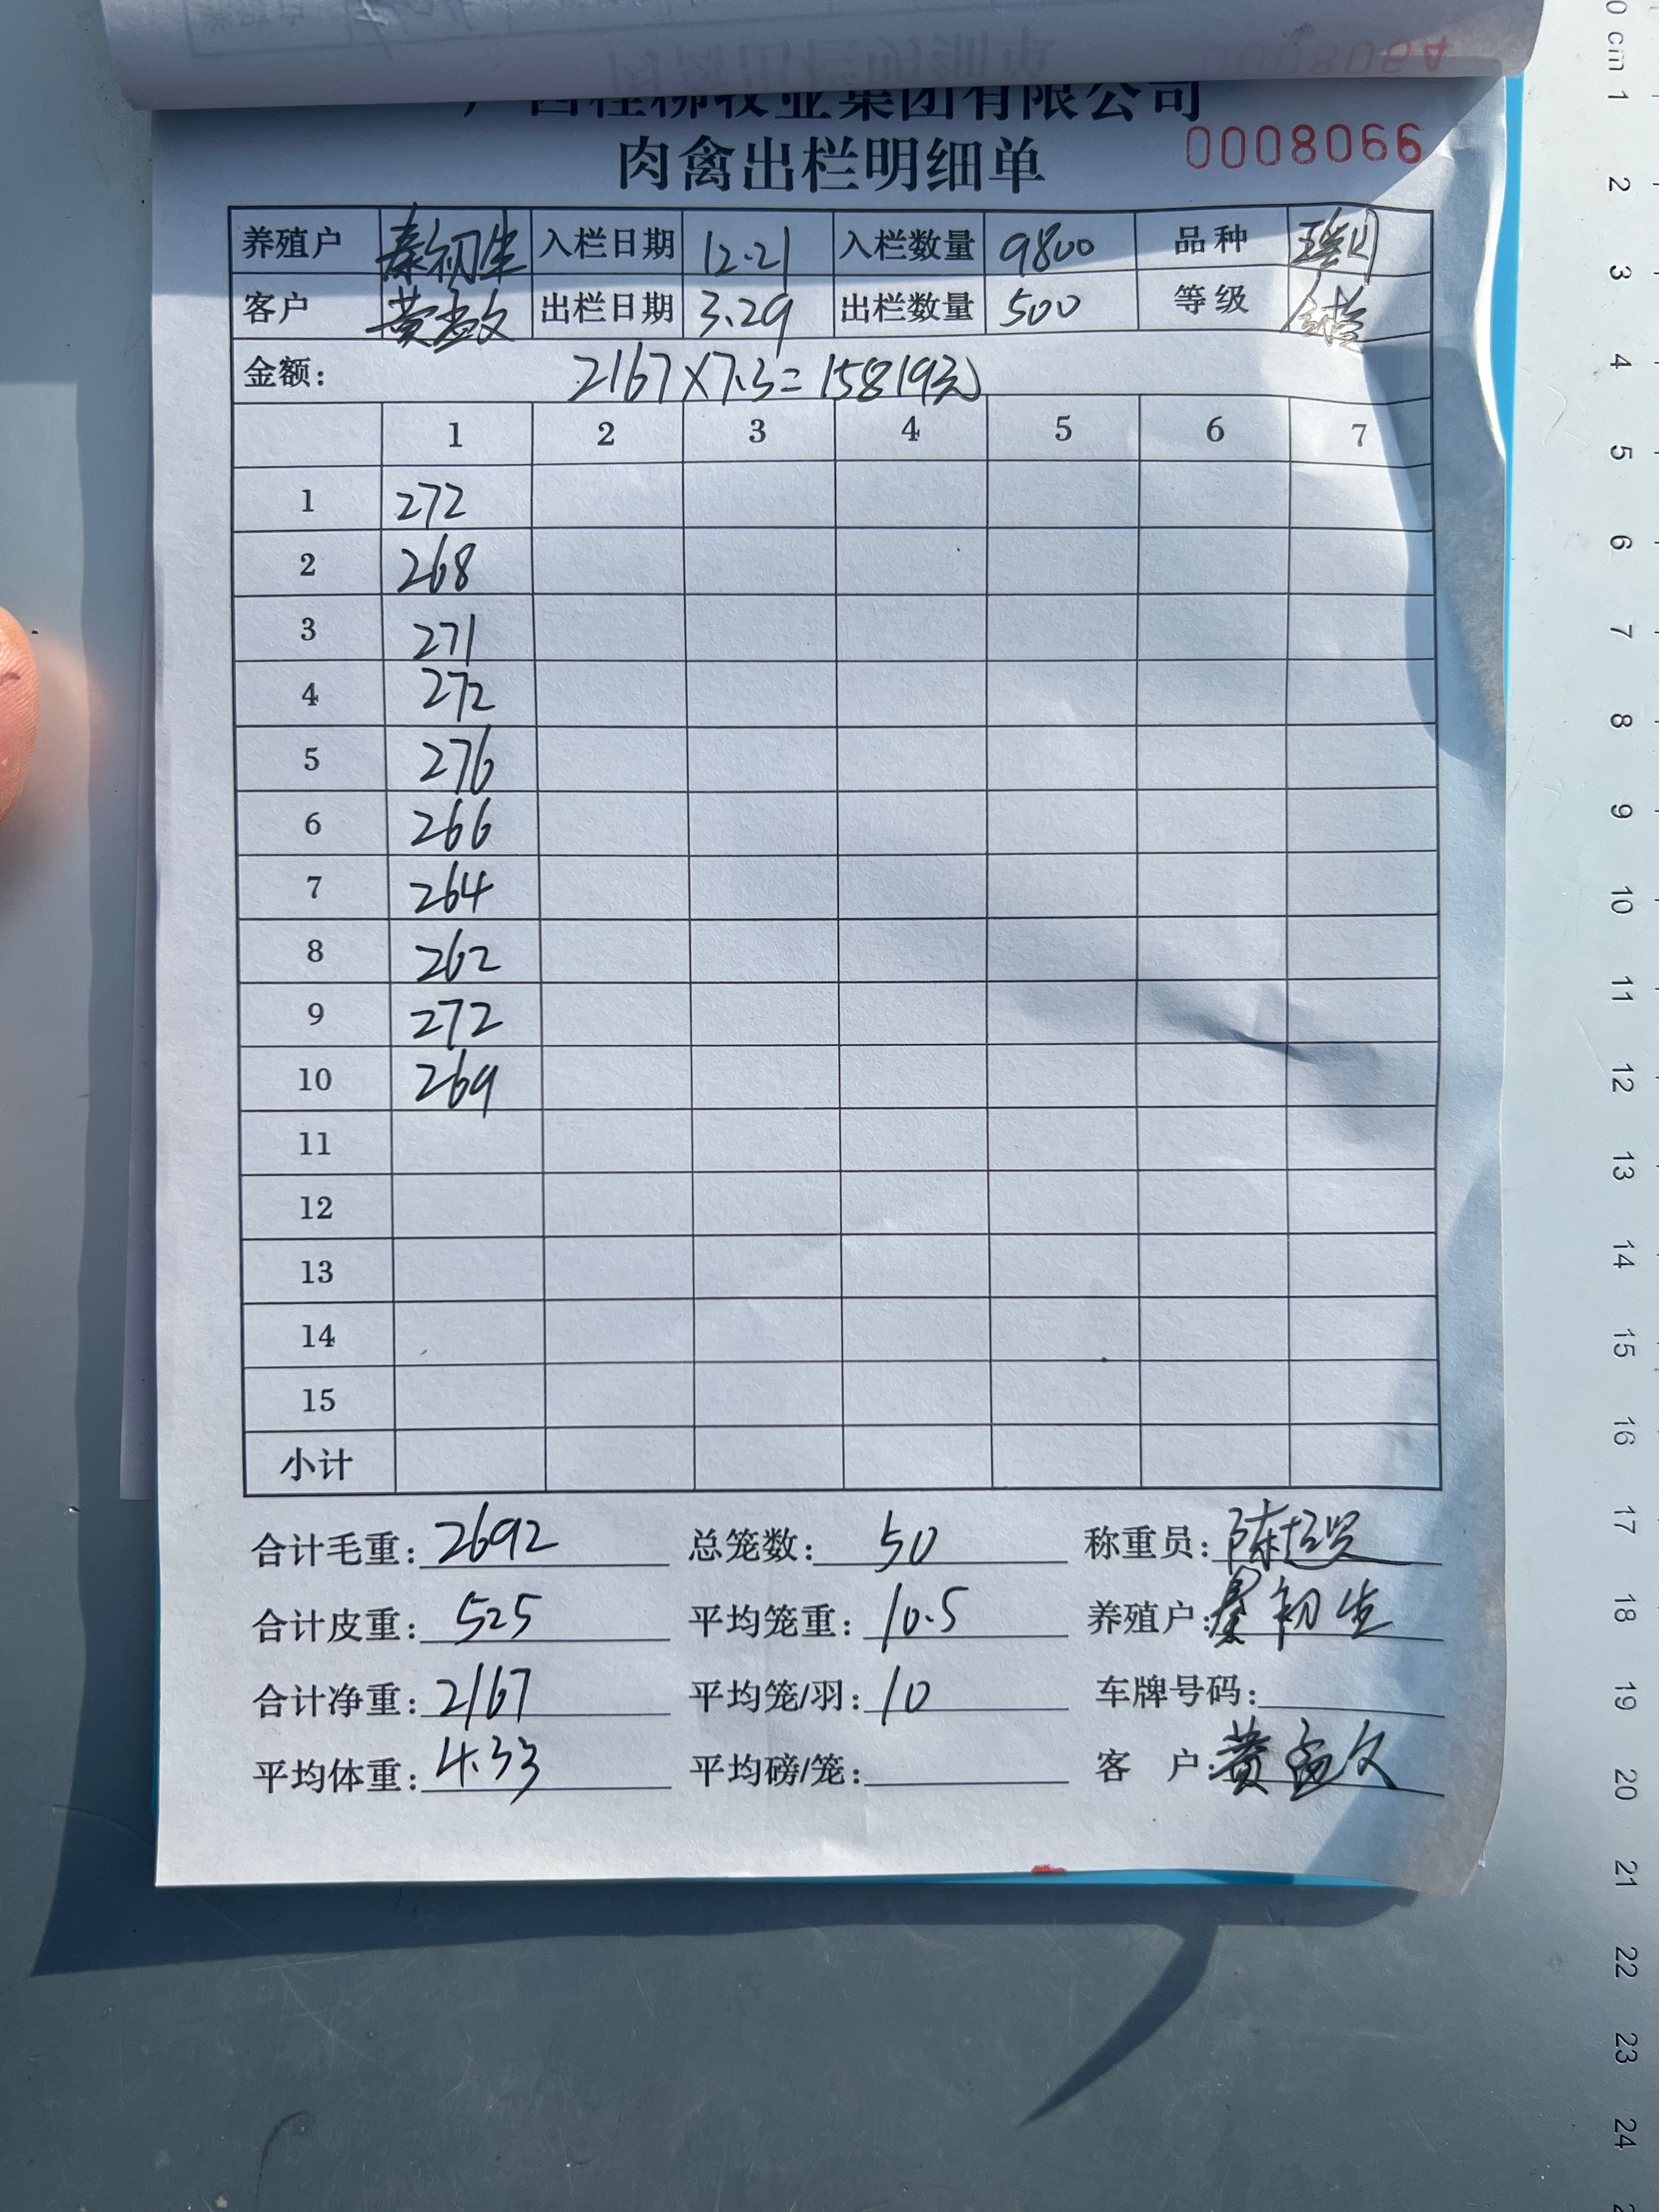 广西桂柳牧业集团有限公司
肉禽出栏明细单 0008066
养殖户 秦初生 入栏日期 12.21 入栏数量 9800 品种
客户 黄 出栏日期 3.29 出栏数量 500 等级
金额: 2167×7.3=15819元
1 2 3 4 5 6 7
1 272
2 268
3 271
4 272
5 276
6 266
7 264
8 262
9 272
10 269
11
12
13
14
15
小计
合计毛重: 2692 总笼数: 50 称重员: 陈
合计皮重: 525 平均笼重: 10.5 养殖户: 秦初生
合计净重: 2167 平均笼/羽: 10 车牌号码:
平均体重: 4.33 平均磅/笼: 客户: 黄
0 cm 1 2 3 4 5 6 7 8 9 10 11 12 13 14 15 16 17 18 19 20 21 22 23 24